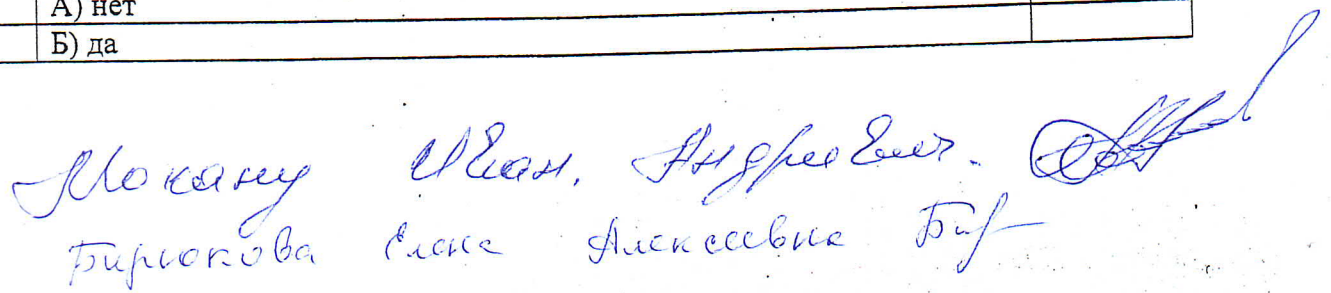 А) нет
Б) да
Мокану Иван. Андриевич.
Бирюкова Елена Алексеевна Бир